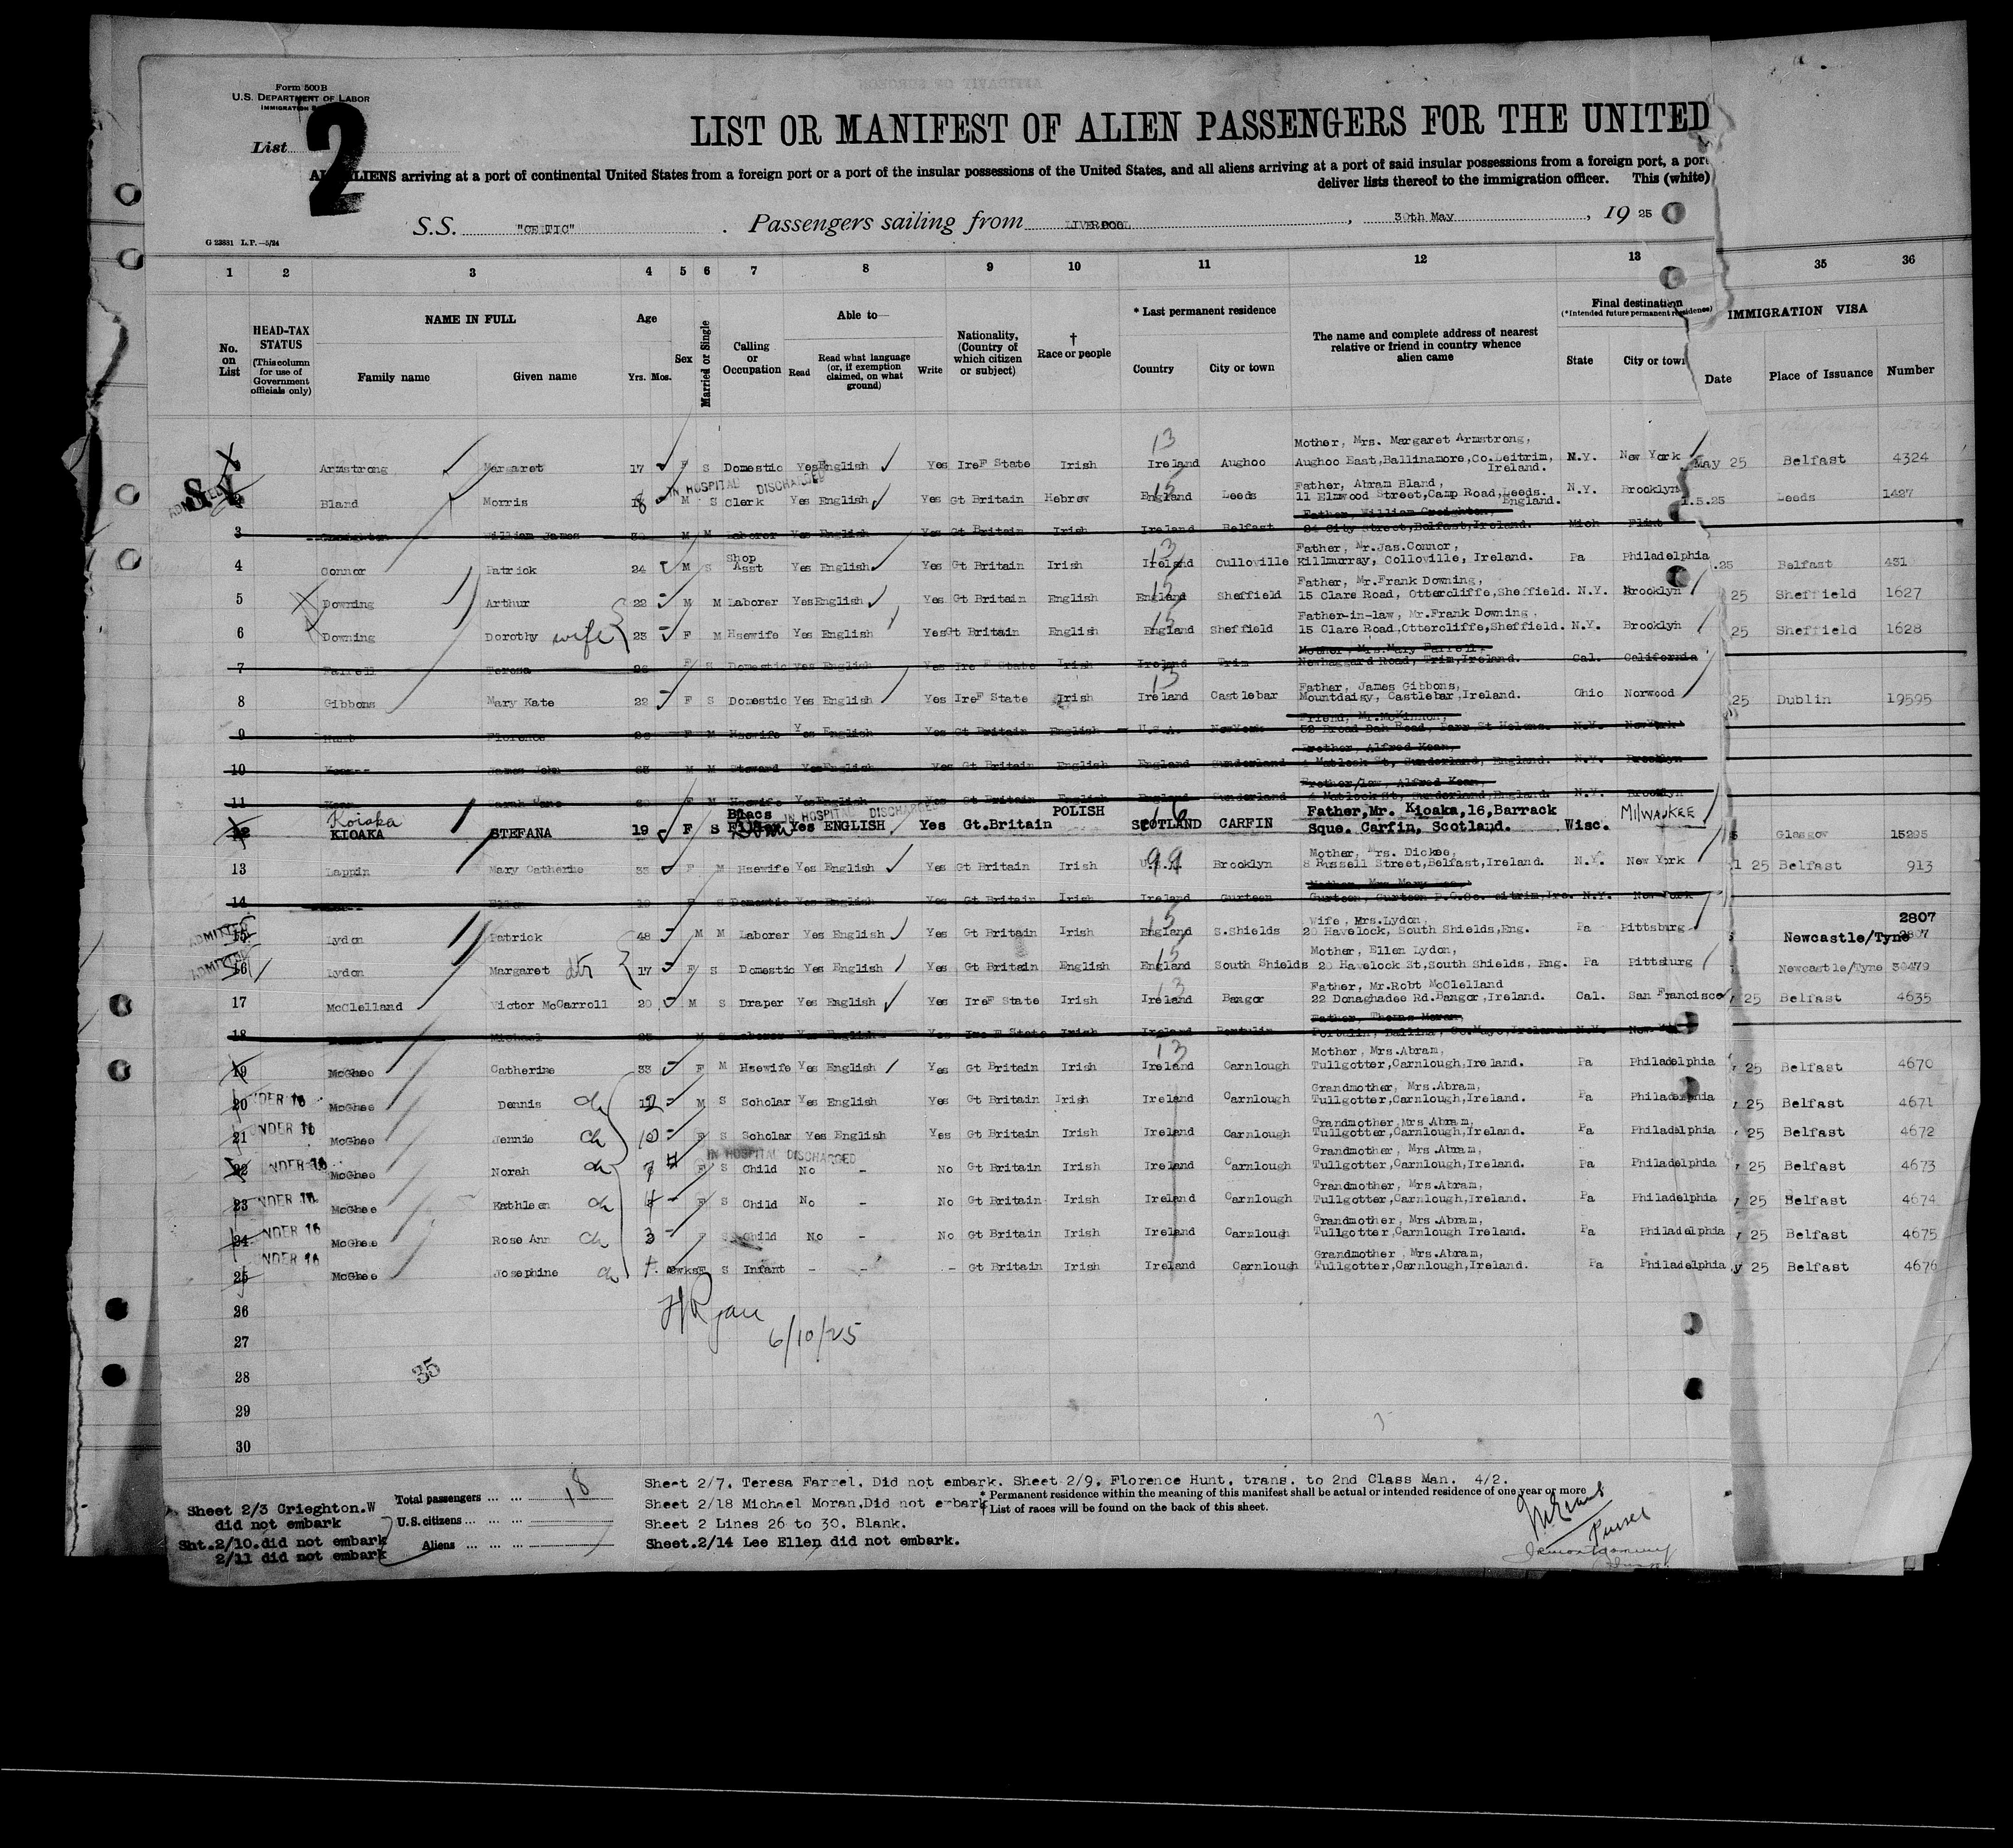 Form 500 B
U.S. DEPARTMENT OF LABOR
IMMIGRATION
List 2
LIST OR MANIFEST OF ALIEN PASSENGERS FOR THE UNITED
ALIENS arriving at a port of continental United States from a foreign port or a port of the insular possessions of the United States, and all aliens arriving at a port of said insular possessions from a foreign port, a port
deliver lists thereof to the immigration officer. This (white)
S.S. "CELTIC" . Passengers sailing from LIVERPOOL, 30th May, 19 25
G 23831 L.P.—5/24
1 2 3 4 5 6 7 8 9 10 11 12 13 35 36
No. on List
HEAD-TAX STATUS (This column for use of Government officials only)
NAME IN FULL
Family name Given name
Age
Yrs. Mos.
Sex
Married or Single
Calling or Occupation
Able to—
Read
Read what language (or, if exemption claimed, on what ground)
Write
Nationality, (Country of which citizen or subject)
† Race or people
* Last permanent residence
Country City or town
The name and complete address of nearest relative or friend in country whence alien came
Final destination
(*Intended future permanent residence)
State City or town
IMMIGRATION VISA
Date Place of Issuance Number
Mother, Mrs. Margaret Armstrong,
Armstrong Margaret 17 F S Domestic Yes English Yes Ire F State Irish Ireland Aughoo Aughoo East, Ballinamore, Co. Leitrim, Ireland. N.Y. New York May 25 Belfast 4324
IN HOSPITAL DISCHARGED
Father, Abram Bland,
Bland Morris 18 M S Clerk Yes English Yes Gt Britain Hebrew England Leeds 11 Elmwood Street, Camp Road, Leeds. England. N.Y. Brooklyn 1.5.25 Leeds 1427
Father, William Creighton,
3 Creighton William James M M Laborer Yes English Yes Gt Britain Irish Ireland Belfast City Street, Belfast, Ireland. Mich Flint
Father, Mr. Jas. Connor,
4 Connor Patrick 24 M S Shop Asst Yes English Yes Gt Britain Irish Ireland Culloville Killmurray, Colloville, Ireland. Pa Philadelphia .25 Belfast 431
Father, Mr. Frank Downing,
5 Downing Arthur 22 M M Laborer Yes English Yes Gt Britain English England Sheffield 15 Clare Road, Ottercliffe, Sheffield. N.Y. Brooklyn 25 Sheffield 1627
Father-in-law, Mr. Frank Downing,
6 Downing Dorothy wife 23 F M Hsewife Yes English Yes Gt Britain English England Sheffield 15 Clare Road, Ottercliffe, Sheffield. N.Y. Brooklyn 25 Sheffield 1628
Mother, Mrs. Mary Farrell.
7 Farrell Teresa 26 F S Domestic Yes English Yes Ire F State Irish Ireland Trim Newhaggard Road, Trim, Ireland. Cal. California
Father, James Gibbons,
8 Gibbons Mary Kate 22 F S Domestic Yes English Yes Ire F State Irish Ireland Castlebar Mountdaisy, Castlebar, Ireland. Ohio Norwood 25 Dublin 19595
Friend, Mr. McKinnon,
9 Hunt Florence F M Hsewife Yes English Yes Gt Britain English U.S.A. New York N.Y. New York
Brother, Alfred Kean,
10 James John 63 M M Steward Yes English Yes Gt Britain English England Sunderland 4 Matlock St, Sunderland, England. N.Y. Brooklyn
Brother/law, Alfred Kean,
11 Kean Sarah Jane F M Hsewife Yes English Yes Gt Britain English England Sunderland 4 Matlock St, Sunderland, England. N.Y. Brooklyn
Koiaka IN HOSPITAL DISCHARGED
12 KIOAKA STEFANA 19 F S Yes ENGLISH Yes Gt. Britain POLISH SCOTLAND CARFIN Father, Mr. Kioaka, 16, Barrack Sque. Carfin, Scotland. Wisc. MILWAUKEE Glasgow 15295
Mother, Mrs. Dickee,
13 Lappin Mary Catherine 33 F M Hsewife Yes English Yes Gt Britain Irish Brooklyn 8 Russell Street, Belfast, Ireland. N.Y. New York 1 25 Belfast 913
14 Ellen 19 F S Domestic Yes English Yes Gt Britain Irish Ireland Gurteen N.Y. New York
ADMITTED Wife, Mrs. Lydon, 2807
15 Lydon Patrick 48 M M Laborer Yes English Yes Gt Britain Irish England S. Shields 20 Havelock, South Shields, Eng. Pa Pittsburg Newcastle/Tyne 2807
ADMITTED Mother, Ellen Lydon,
16 Lydon Margaret dtr 17 F S Domestic Yes English Yes Gt Britain English England South Shields 20 Havelock St, South Shields, Eng. Pa Pittsburg Newcastle/Tyne 30479
Father, Mr. Robt McClelland
17 McClelland Victor McCarroll 20 M S Draper Yes English Yes Ire F State Irish Ireland Bangor 22 Donaghadee Rd. Bangor, Ireland. Cal. San Francisco 25 Belfast 4635
Father, Thomas Moran,
18 Michael M S Laborer Yes English Yes Ire F State Irish Ireland Portulin Portulin, Ballina, Co. Mayo, Ireland. N.Y. New York
Mother, Mrs. Abram,
19 McGhee Catherine 33 F M Hsewife Yes English Yes Gt Britain Irish Ireland Carnlough Tullgotter, Carnlough, Ireland. Pa Philadelphia 25 Belfast 4670
Grandmother, Mrs. Abram,
20 UNDER 16 McGhee Dennis ch 12 M S Scholar Yes English Yes Gt Britain Irish Ireland Carnlough Tullgotter, Carnlough, Ireland. Pa Philadelphia 25 Belfast 4671
Grandmother, Mrs Abram,
21 UNDER 16 McGhee Jennie ch 10 F S Scholar Yes English Yes Gt Britain Irish Ireland Carnlough Tullgotter, Carnlough, Ireland. Pa Philadelphia 25 Belfast 4672
IN HOSPITAL DISCHARGED Grandmother, Mrs. Abram,
22 UNDER 16 McGhee Norah ch 7 F S Child No - No Gt Britain Irish Ireland Carnlough Tullgotter, Carnlough, Ireland. Pa Philadelphia 25 Belfast 4673
Grandmother, Mrs. Abram,
23 UNDER 16 McGhee Kathleen ch 4 F S Child No - No Gt Britain Irish Ireland Carnlough Tullgotter, Carnlough, Ireland. Pa Philadelphia 25 Belfast 4674
Grandmother, Mrs. Abram,
24 UNDER 16 McGhee Rose Ann ch 3 F S Child No - No Gt Britain Irish Ireland Carnlough Tullgotter, Carnlough Ireland. Pa Philadelphia 25 Belfast 4675
Grandmother, Mrs. Abram,
25 UNDER 16 McGhee Josephine ch F S Infant - - - Gt Britain Irish Ireland Carnlough Tullgotter, Carnlough, Ireland. Pa Philadelphia y 25 Belfast 4676
26
HRyan
27 6/10/25
28 35
29
30
Sheet 2/3 Crieghton.W
did not embark
Sht.2/10.did not embark
2/11 did not embark
Total passengers ... ... 18
U.S. citizens ... ... ...
Aliens ... ... ...
Sheet 2/7. Teresa Farrel. Did not embark. Sheet 2/9. Florence Hunt. trans. to 2nd Class Man. 4/2.
Sheet 2/18 Michael Moran.Did not embark
Sheet 2 Lines 26 to 30. Blank.
Sheet.2/14 Lee Ellen did not embark.
* Permanent residence within the meaning of this manifest shall be actual or intended residence of one year or more
† List of races will be found on the back of this sheet.
Purser